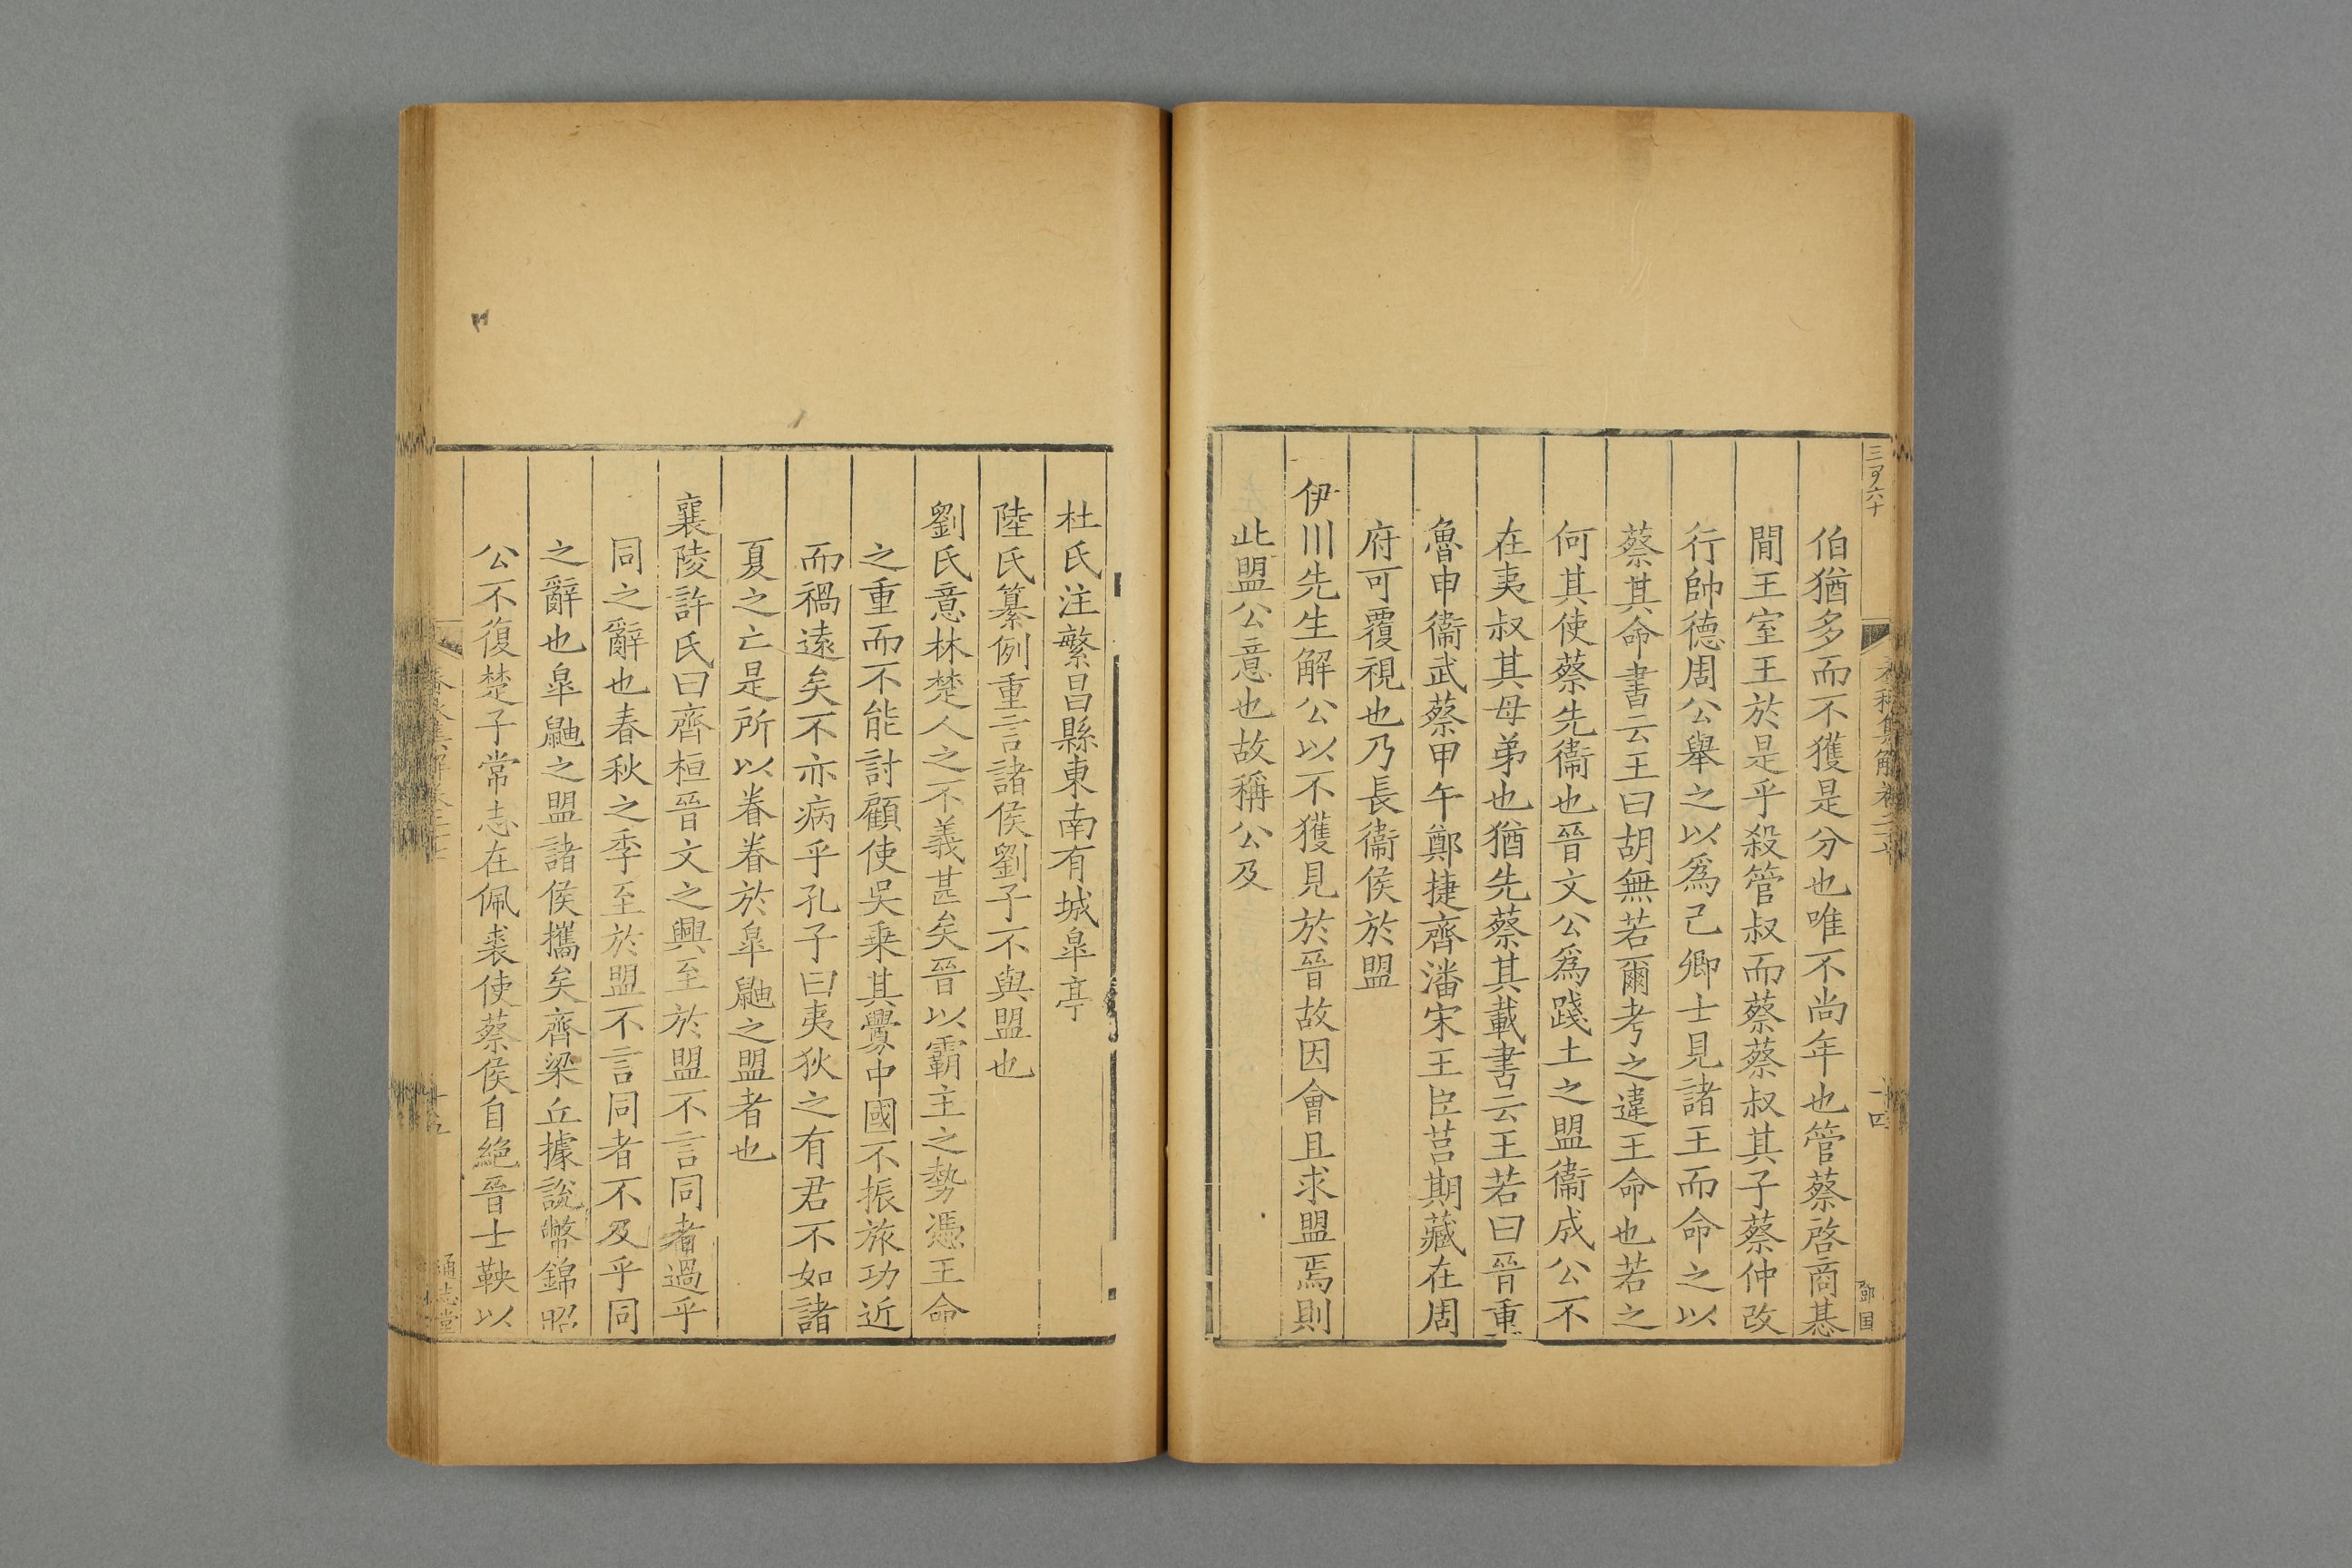 伯猶多而不獲是分也唯不尚年也管蔡啓商惎
閒王室王於是乎殺管叔而蔡蔡叔其子蔡仲改
行帥德周公舉之以爲己卿士見諸王而命之以
蔡其命書云王曰胡無若爾考之違王命也若之
何其使蔡先衞也晉文公爲踐土之盟衞成公不
在夷叔其母弟也猶先蔡其載書云王若曰晉重
魯申衞武蔡甲午鄭捷齊潘宋王臣莒期藏在周
府可覆視也乃長衞侯於盟
伊川先生解公以不獲見於晉故因會且求盟焉則
此盟公意也故稱公及
杜氏注繁昌縣東南有城皐亭
陸氏纂例重言諸侯劉子不與盟也
劉氏意林楚人之不義甚矣晉以霸主之勢憑王命
之重而不能討顧使吳乗其釁中國不振旅功近
而禍遠矣不亦病乎孔子曰夷狄之有君不如諸
夏之亡是所以眷眷於皐鼬之盟者也
襄陵許氏曰齊桓晉文之興至於盟不言同者過乎
同之辭也春秋之季至於盟不言同者不及乎同
之辭也皐鼬之盟諸侯攜矣齊梁丘據說幣錦昭
公不復楚子常志在佩裘使蔡侯自絶晉士鞅以